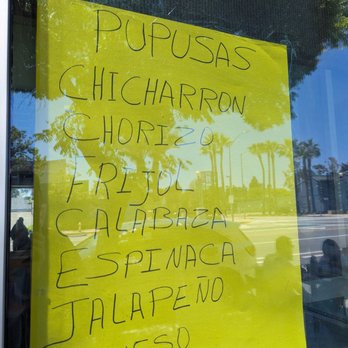 PUPUSAS
CHICHARRON
CHORIZO
FRIJOL
CALABAZA
ESPINACA
JALAPEÑO